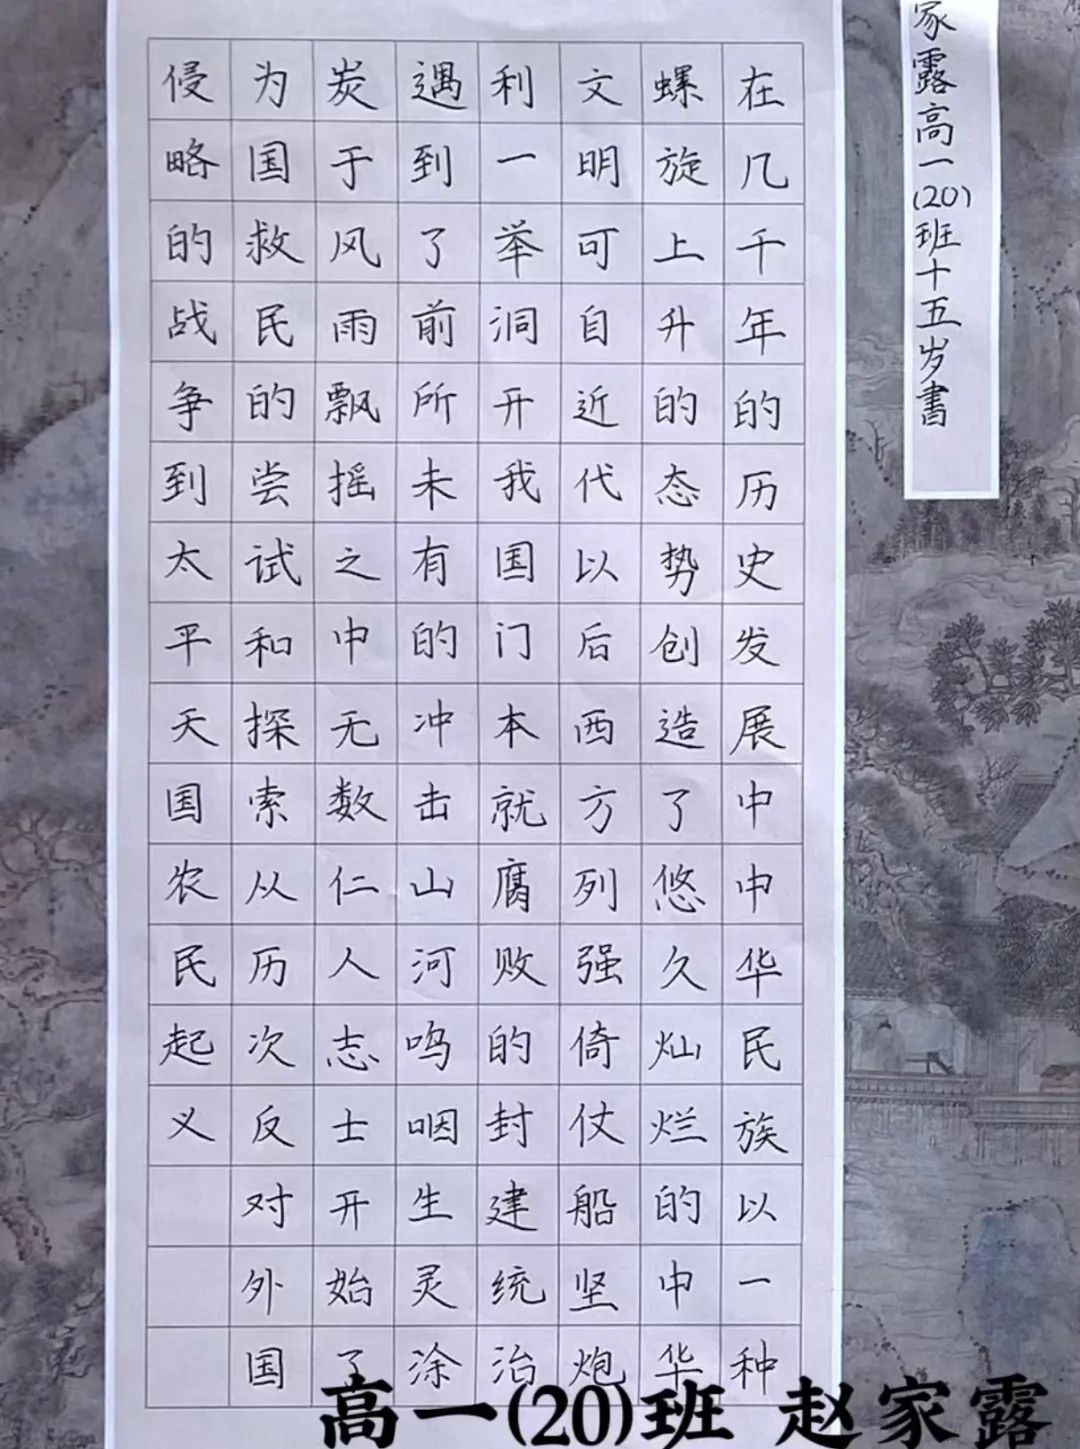 家露高一(20)班十五岁書
在几千年的历史发展中中华民族以一种
螺旋上升的态势创造了悠久灿烂的中华
文明可自近代以后西方列强倚仗船坚炮
利一举洞开我国门本就腐败的封建统治
遇到了前所未有的冲击山河呜咽生灵涂
炭于风雨飘摇之中无数仁人志士开始了
为国救民的尝试和探索从历次反对外国
侵略的战争到太平天国农民起义
高一(20)班 赵家露